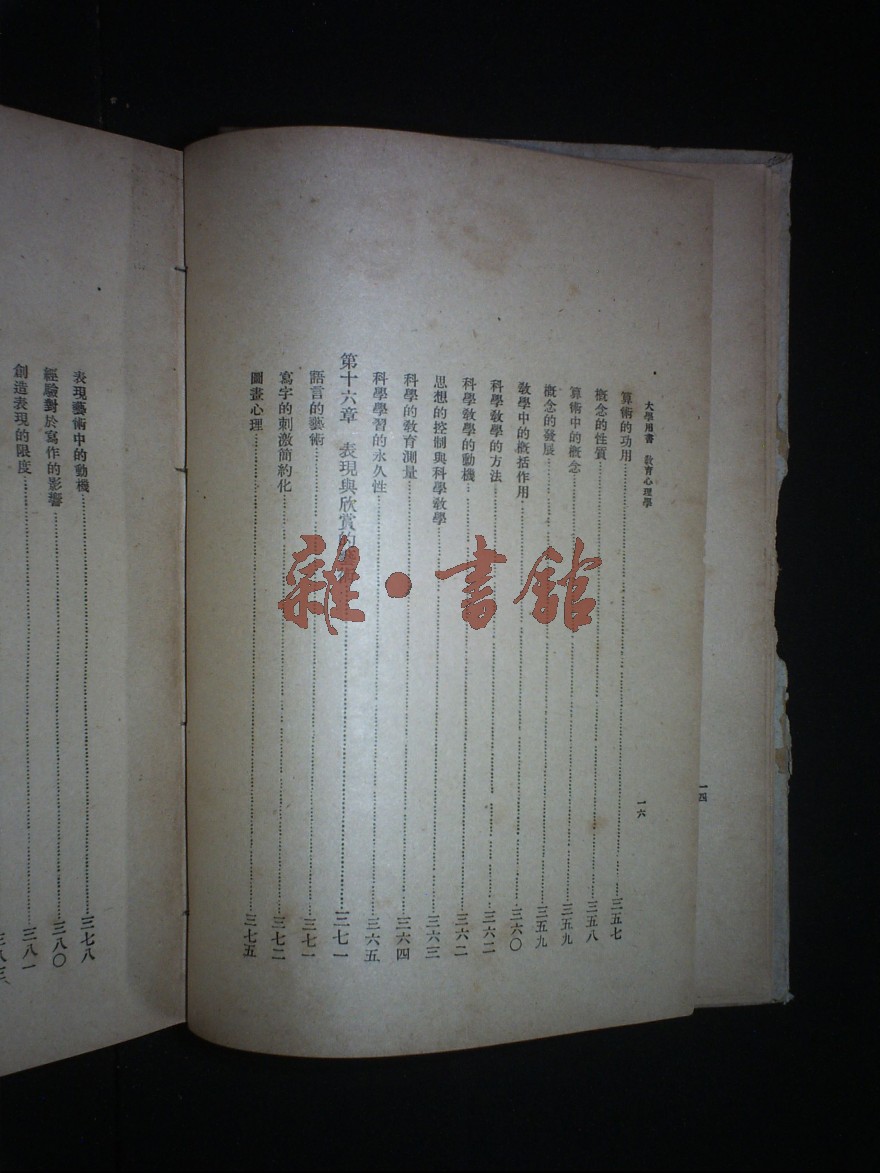 大學用書 教育心理學
一六
算術的功用 三五七
概念的性質 三五八
算術中的概念 三五九
概念的發展 三五九
教學中的概括作用 三六〇
科學教學的方法 三六二
科學教學的動機 三六二
思想的控制與科學教學 三六三
科學的教育測量 三六四
科學學習的永久性 三六五
第十六章 表現與欣賞的 三七一
語言的藝術 三七一
寫字的刺激簡約化 三七二
圖畫心理 三七五
表現藝術中的動機 三七八
經驗對於寫作的影響 三八〇
創造表現的限度 三八一
一四
雜·書館